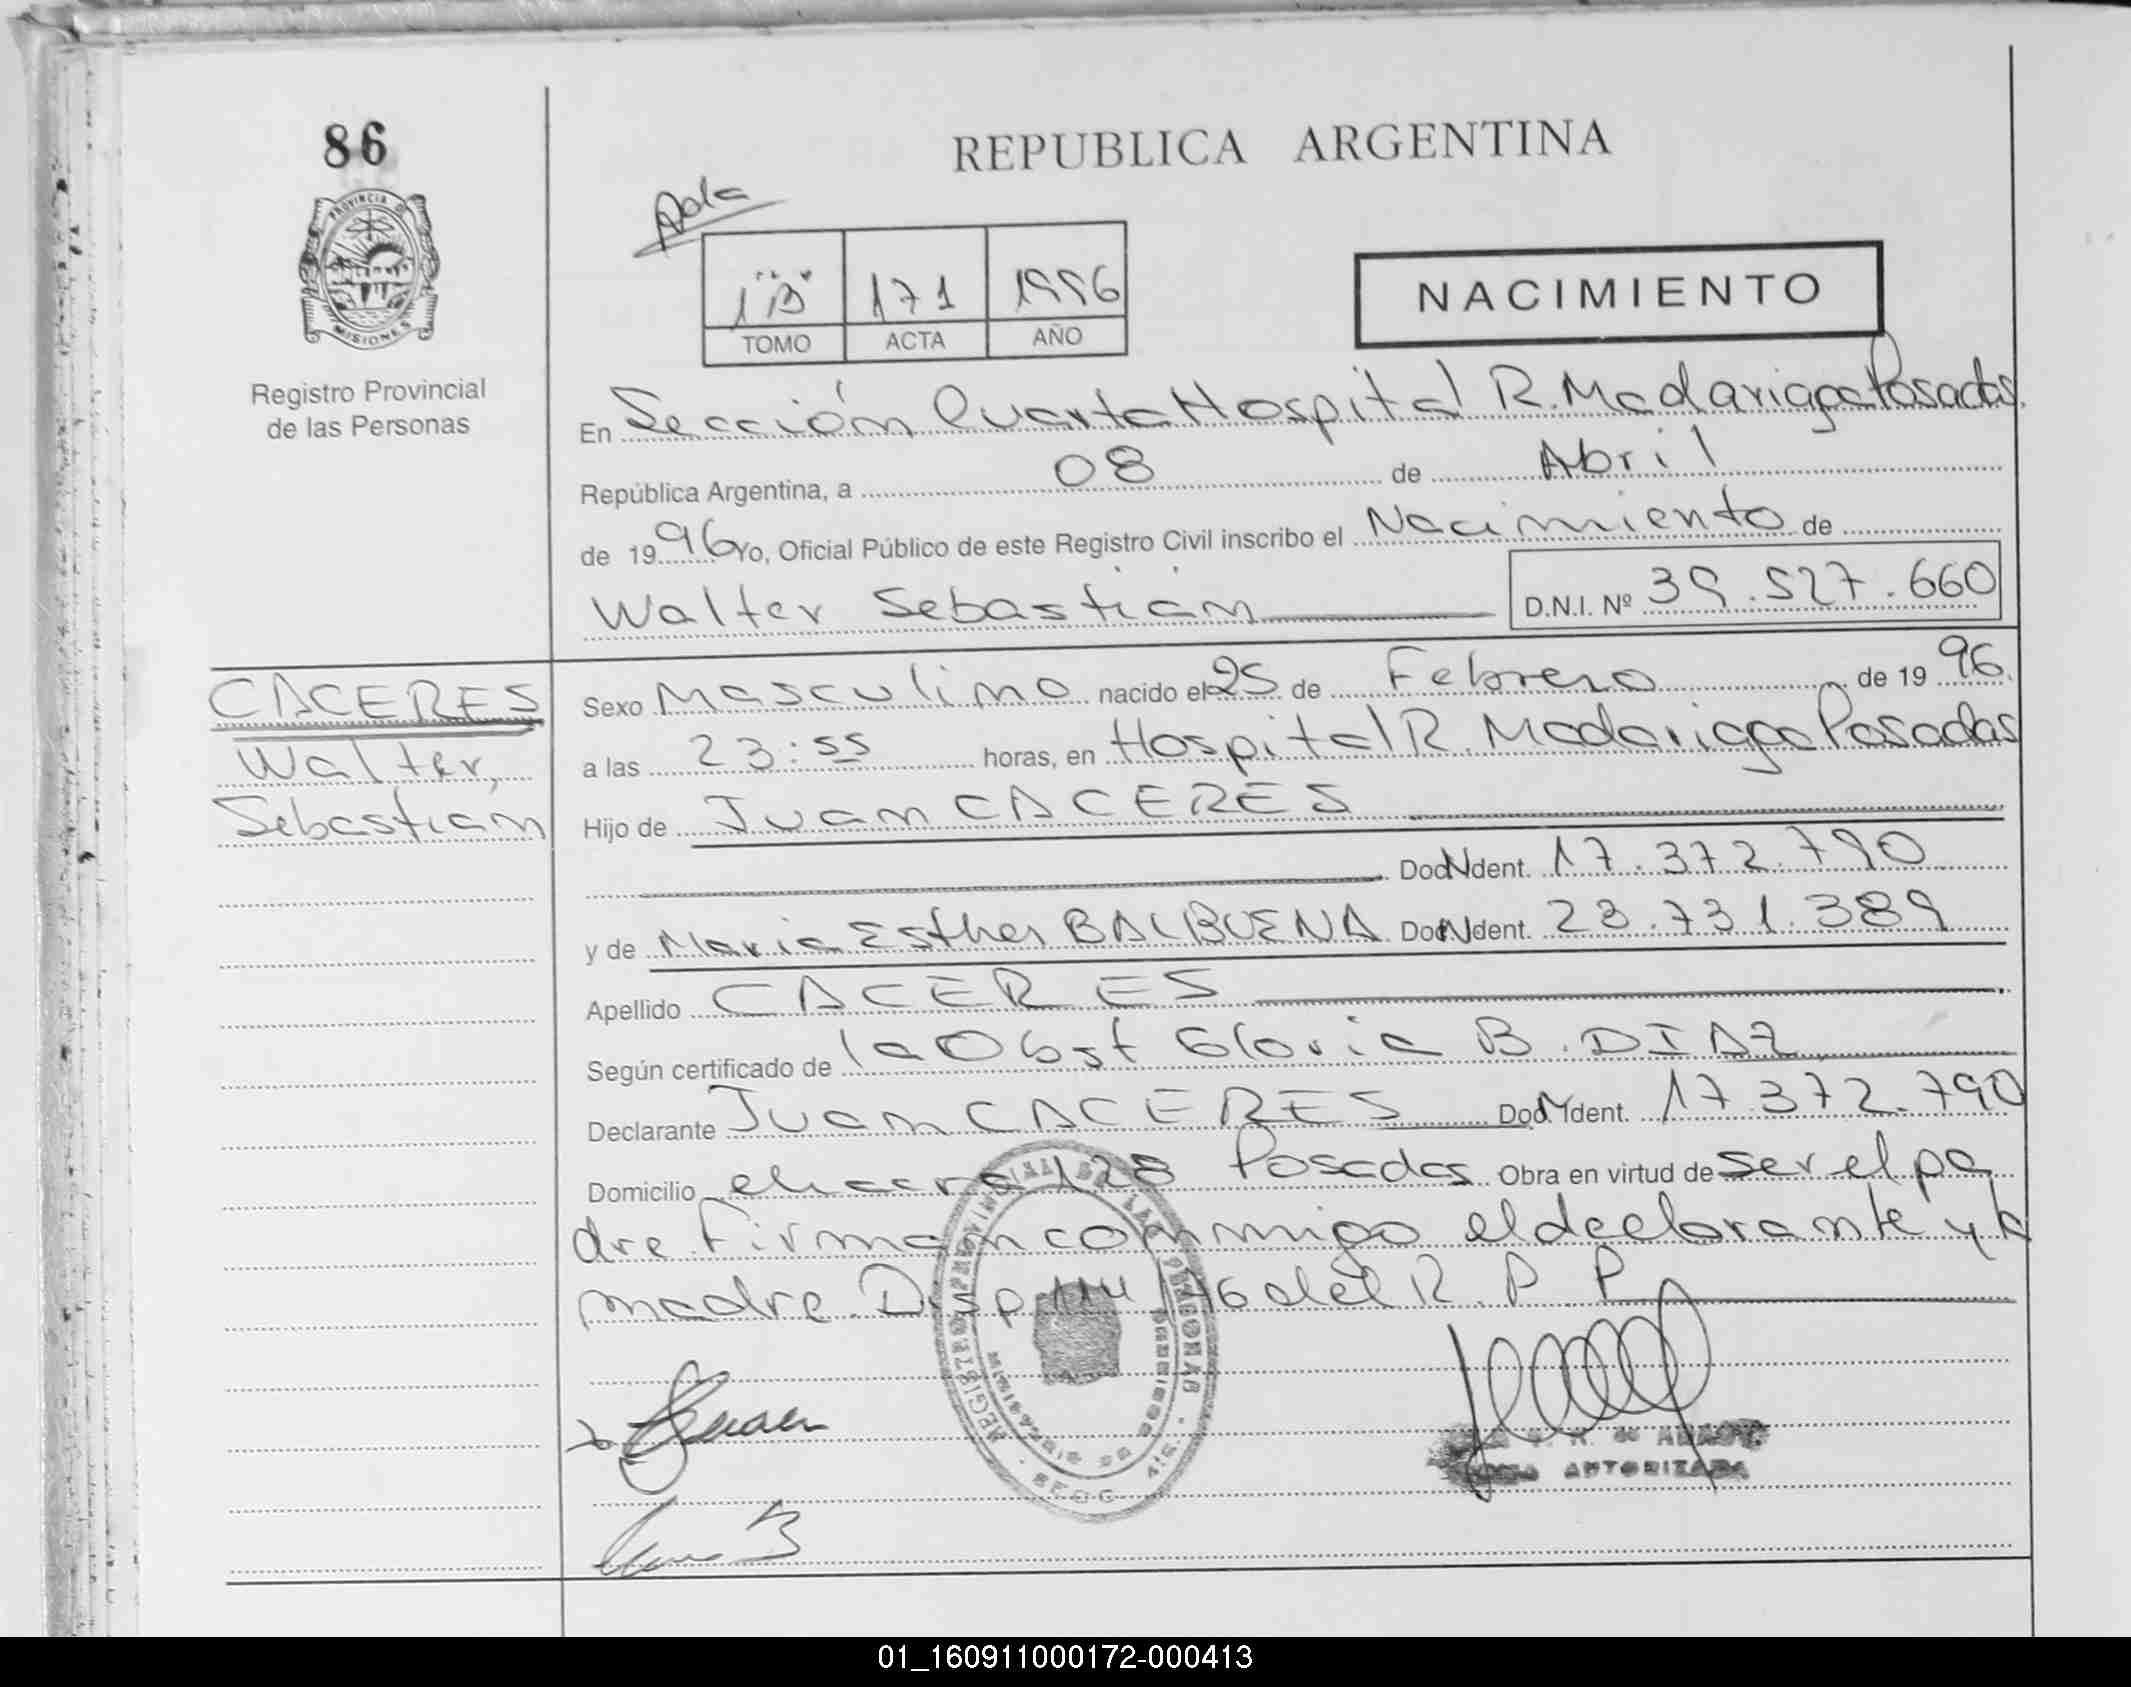 86
REPUBLICA ARGENTINA
PROVINCIA D
MISIONES
Registro Provincial
de las Personas
1 "B" 171 1996
TOMO ACTA AÑO
NACIMIENTO
En Sección Cuarta Hospital R. Madariaga Posadas
República Argentina, a 08 de Abril
de 1996 Yo, Oficial Público de este Registro Civil inscribo el Nacimiento de
Walter Sebastián D.N.I. Nº 39.527.660
CACERES
Walter,
Sebastián
Sexo Masculino nacido el 25 de Febrero de 1996.
a las 23:55 horas, en Hospital R. Madariaga Posadas
Hijo de Juan CACERES
Doc N Ident. 17.372.790
y de Maria Esther BALBUENA Doc N Ident. 23.731.389
Apellido CACERES
Según certificado de la Obst Gloria B. DIAZ
Declarante Juan CACERES Doc N Ident. 17.372.790
Domicilio chacra 128 Posadas Obra en virtud de ser el pa
dre. Firman conmigo el declarante y la
madre. Disp. 114/76 del R. P. P.
AUTORIZADA
01_160911000172-000413